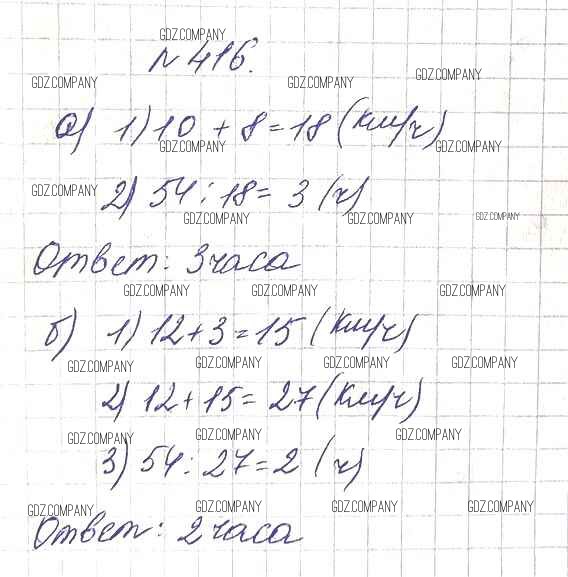 GDZ.COMPANY
№ 416.
GDZ.COMPANY GDZ.COMPANY GDZ.COMPANY
а) 1) 10 + 8 = 18 (км/ч)
GDZ.COMPANY GDZ.COMPANY
2) 54 : 18 = 3 (ч)
GDZ.COMPANY
GDZ.COMPANY GDZ.COMPANY GDZ.COMPANY
Ответ: 3 часа
GDZ.COMPANY GDZ.COMPANY GDZ.COMPANY
б) 1) 12 + 3 = 15 (км/ч)
GDZ.COMPANY GDZ.COMPANY GDZ.COMPANY GDZ.COMPANY
2) 12 + 15 = 27 (км/ч)
GDZ.COMPANY GDZ.COMPANY GDZ.COMPANY
3) 54 : 27 = 2 (ч)
GDZ.COMPANY GDZ.COMPANY GDZ.COMPANY GDZ.COMPANY
Ответ: 2 часа